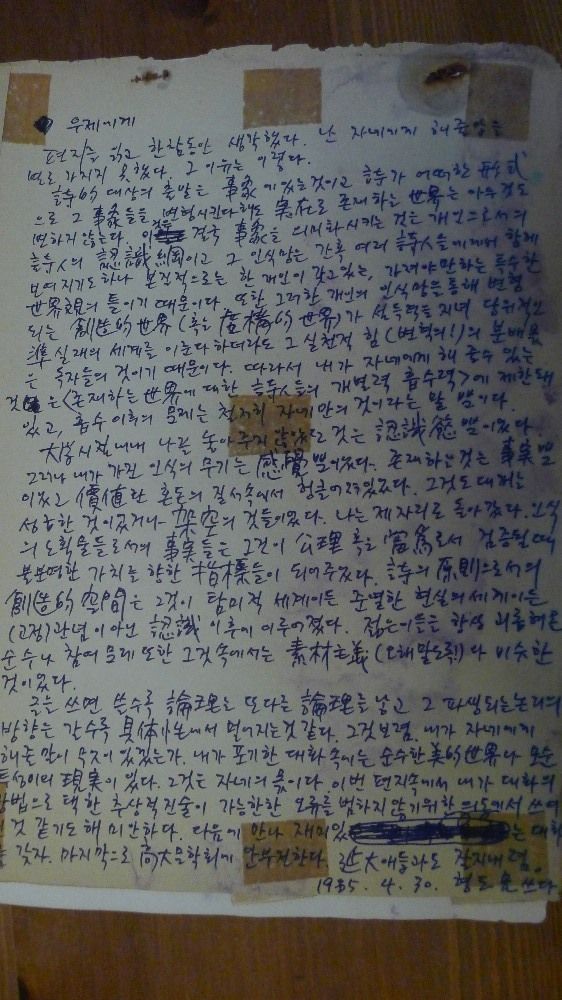 우제에게
편지를 읽고 한참동안 생각했다. 난 자네에게 해줄말을
별로 가지지 못했다. 그 이유는 이렇다.
詩的 대상의 출발은 事象에 있는것이고 詩가 어떠한 形式
으로 그 事象들을 변형시킨다해도 実在로 존재하는 世界는 아무것도
변하지 않는다. 결국 事象을 의식화시키는 것은 개인으로서의
詩人의 認識網이고 그 인식망은 간혹 여러 詩人들에게서 함께
보여지기도하나 본질적으로는 한 개인이 갖고있는, 가져야만하는 특수한
世界観의 틀이기 때문이다. 또한 그러한 개인의 인식망을 통해 변형
되는 創造的世界(혹은 虛構的世界)가 설득력을 지녀 당위적인
실재의 세계를 이룬다하더라도 그 실천적 힘(변혁의!)의 분배
은 독자들의 것이기 때문이다. 따라서 내가 자네에게 해 줄수 있는
것은 <존재하는 世界에 대한 詩人들의 개별적 흡수력>에 제한돼
있고, 흡수 이후의 문제는 천저히 자네만의 것이라는 말 뿐이다.
大学시절내내 나를 놓아주지 않았던 것은 認識慾뿐이었다.
그러나 내가 가진 인식의 무기는 感覺뿐이었다. 존재하는것은 事実뿐
이었고 價値란 혼돈의 질서속에서 헝클어져있었다. 그것도 때로는
성급한 것이었거나 架空의 것들이었다. 나는 제자리로 돌아갔다. 인식
의 노획물들로서의 事実들은 그것이 公理 혹은 當爲로서 검증될때
불분명한 가치를 향한 指標들이 되어주었다. 詩의 原則으로서의
創造的 空間은 그것이 탐미적 세계이든 준열한 현실의 세계이든
(고정)관념이 아닌 認識 이후에 이루어졌다. 젊은이들은 항상 괴롭혀온
순수나 참여 문제 또한 그것 속에서는 素材主義(오해말도록!)과 비슷한
것이었다.
글은 쓰면 쓸수록 論理는 또다른 論理를 낳고 그 파생되는논리의
방향은 갈수록 具体性에서 멀어지는것 같다. 그것보렴. 내가 자네에게
해줄 말이 무엇이 있겠는가. 내가 포기한 대화속에는 순수한 美的世界나 모순
투성이의 現実이 있다. 그것은 자네의 몫이다. 이번 편지속에서 내가 대화의
방법으로 택한 추상적진술이 가능한한 오류를 범하지 않기위한 의도에서 쓰여
진 것 같기도해 미안하다. 다음에 만나 재미있는 대화
를 갖자. 마지막으로 高大문학회에 안부전한다. 延大애들과도 잘지내렴.
1985. 4. 30. 형도 씀.